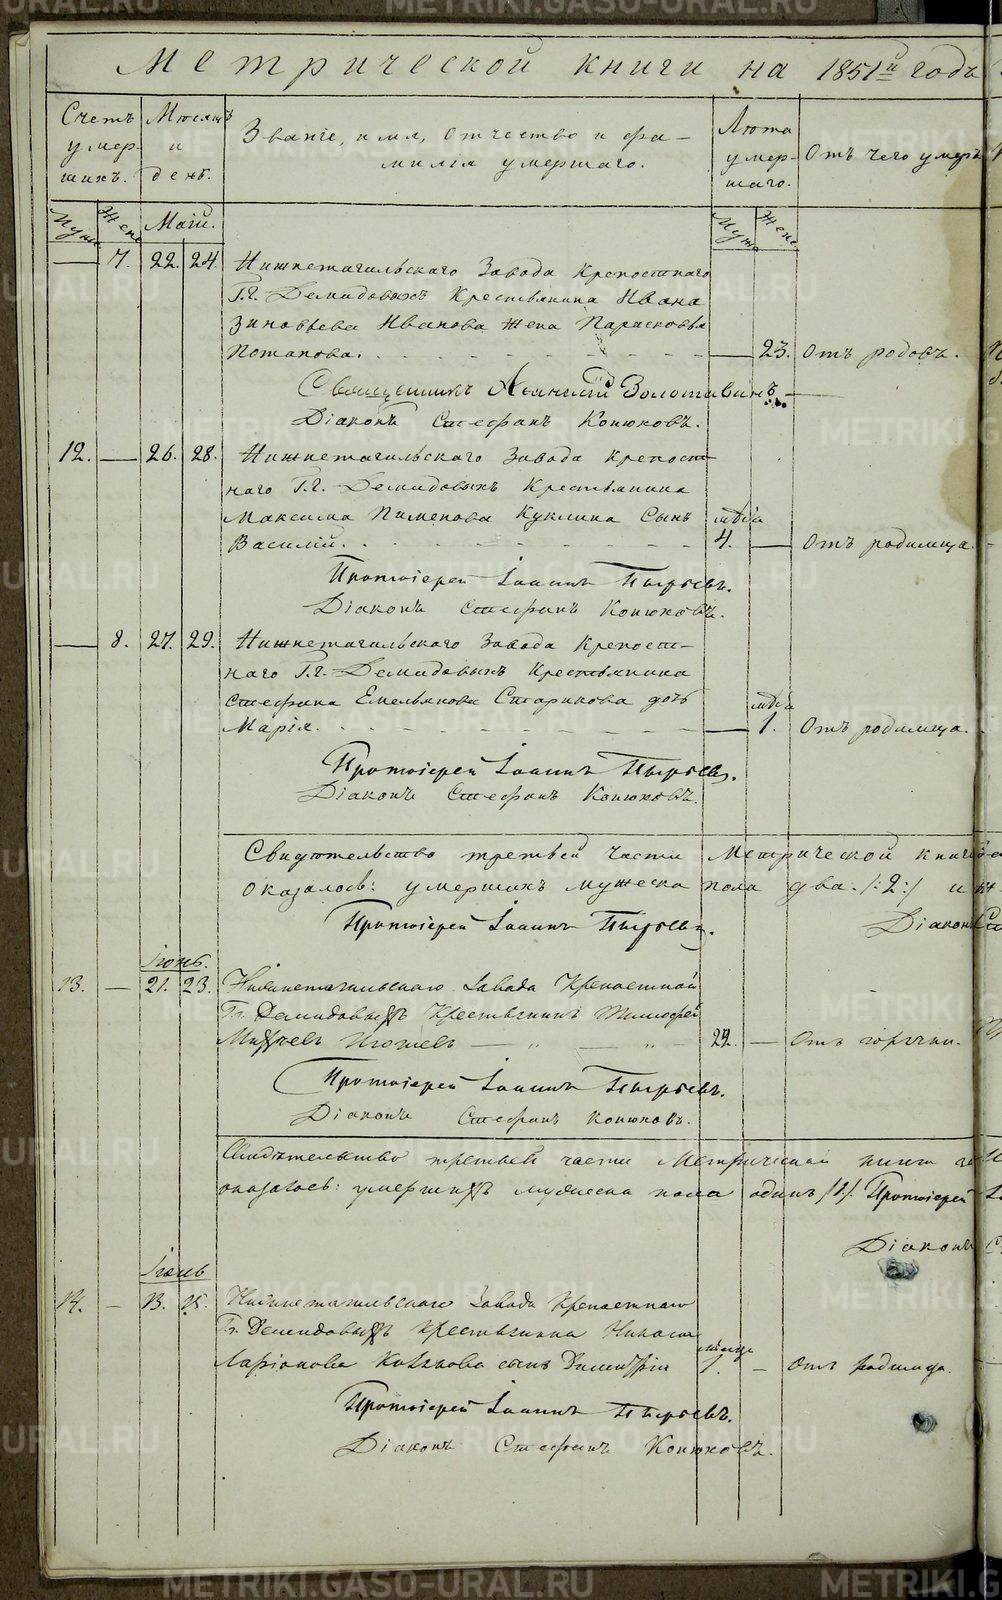 Метрической книги на 1851й годъ
Счетъ умер-шихъ.
Мѣсяцъ и день.
Званіе, имя, отчество и фа-
милія умершаго.
Лѣта умер-шаго.
Отъ чего умеръ
Муж Жен Маій. Муж Жен
— 7. 22. 24. Нижнетагильскаго Завода крепостнаго
Г.г. Демидовыхъ Крестьянина Ивана
Зиновьева Иванова жена Парасковья
Потапова. — 23. Отъ родовъ.
Священникъ Золотавинъ
Діаконъ Стефанъ Конюховъ.
12. — 26. 28. Нижнетагильскаго Завода крепост-
наго Г.г. Демидовыхъ Крестьянина
Максима Пименова Куклина Сынъ
Василій. 4. — Отъ родимца.
Протоіерей Іоаннъ Пырьевъ.
Діаконъ Стефанъ Конюховъ.
— 8. 27. 29. Нижнетагильскаго Завода крепост-
наго Г.г. Демидовыхъ крестьянина
Стефана Емельянова Старикова дочь
Марія. — 1. Отъ родимца.
Протоіерей Іоаннъ Пырьевъ.
Діаконъ Стефанъ Конюховъ.
Свидѣтельство третьей части Метрической книги
оказалось: умершихъ мужеска пола два /:2:/ и
Протоіерей Іоаннъ Пырьевъ.
Діаконъ
Іюнь.
13. — 21. 23. Нижнетагильскаго Завода Крепостной
Гг. Демидовыхъ Крестьянинъ Тимофей
— 29. — Отъ горячки.
Протоіерей Іоаннъ Пырьевъ.
Діаконъ Стефанъ Конюховъ.
Свидѣтельство третьей части Метрической книги
оказалось: умершихъ мужеска пола одинъ /:1:/. Протоіерей
Діаконъ
14. — 13. 15. Нижнетагильскаго Завода Крепостнаго
Гг. Демидовыхъ крестьянина
Ларіонова сынъ Димитрій 1. — Отъ родимца.
Протоіерей Іоаннъ Пырьевъ.
Діаконъ Стефанъ Конюховъ.
METRIKI.GASO-URAL.RU